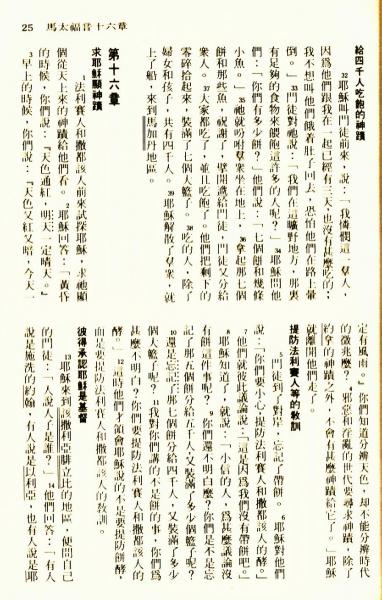 25 馬太福音十六章
給四千人吃飽的神蹟
32 耶穌叫門徒前來，說：「我憐憫這一羣人，
因爲他們跟我在一起已經有三天，也沒有甚麼吃的；
我不想叫他們餓着肚子回去，恐怕他們在路上暈
倒。」33 門徒對祂說：「我們在這曠野地方，那裏
有足夠的食物來餵飽這許多的人呢？」34 耶穌問他
們：「你們有多少餅？」他們說：「七個餅和幾條
小魚。」35 祂就吩咐羣衆坐在地上，36 拿起那七個
餅和那些魚，祝謝了，擘開遞給門徒，門徒又分給
衆人。37 大家都吃了，並且吃飽了。他們把剩下的
零碎拾起來，裝滿了七個大籃子。38 吃的人，除了
婦女和孩子，共有四千人。39 耶穌解散了羣衆，就
上了船，來到馬加丹地區。
第十六章
求耶穌顯神蹟
1 法利賽人和撒都該人前來試探耶穌，求祂顯
個從天上來的神蹟給他們看。2 耶穌回答：「黃昏
的時候，你們說：『天色通紅，明天一定晴天。』
3 早上的時候，你們說：『天色又紅又暗，今天一
定有風雨。』你們知道分辨天色，却不能分辨時代
的徵兆麼？4 邪惡和淫亂的世代要尋求神蹟，除了
約拿的神蹟之外，不會有甚麼神蹟給它了。」耶穌
就離開他們走了。
提防法利賽人等的敎訓
5 門徒到了對岸，忘記了帶餅。6 耶穌對他們
說：「你們要小心，提防法利賽人和撒都該人的酵。」
7 他們就彼此議論說：「這是因爲我們沒有帶餅吧。」
8 耶穌知道了，就說：「小信的人，爲甚麼議論沒
有餅這件事呢？9 你們還不明白麼？你們是不是忘
記了那五個餅分給五千人，又裝滿了多少個籃子呢？
10 還是忘記了那七個餅分給四千人，又裝滿了多少
個大籃子呢？11 我對你們講的不是餅的事，你們爲
甚麼不明白？你們要提防法利賽人和撒都該人的
酵。」12 這時他們才領會耶穌說的不是要提防餅酵，
而是要提防法利賽人和撒都該人的敎訓。
彼得承認耶穌是基督
13 耶穌來到該撒利亞腓立比的地區，便問自己
的門徒：「人說人子是誰？」14 他們回答：「有人
說是施洗的約翰，有人說是以利亞，也有人說是耶